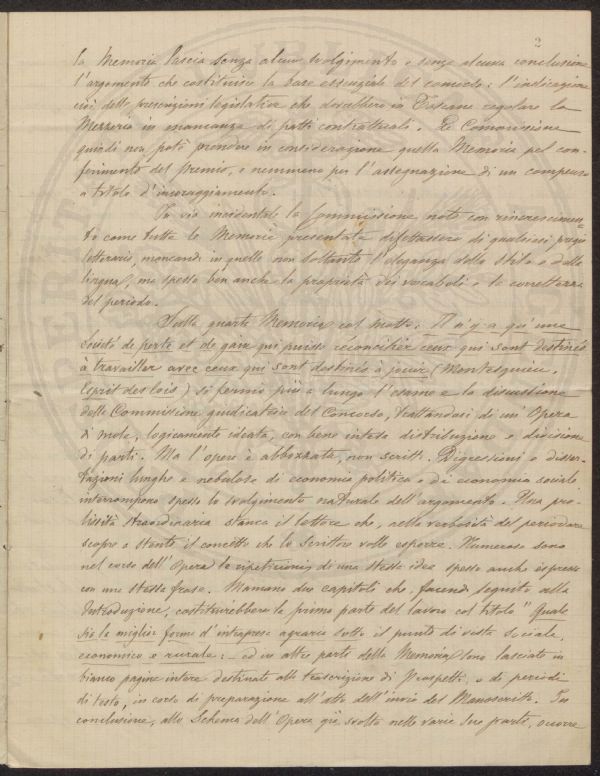 2
la Memoria lascia senza alcun svolgimento e senza alcuna conclusione
l'argomento che costituisce la base essenziale del concorso: l'indicazione
cioè delle prescrizioni legislative che dovrebbero in Toscana regolare la
Mezzeria in mancanza di patti contrattuali. La Commissione
quindi non potè prendere in considerazione quella Memoria pel con-
ferimento del premio, e nemmeno per l'assegnazione di un compenso
a titolo d'incoraggiamento.
In via incidentale la Commissione notò con rincrescimen-
to come tutte le Memorie presentate difettassero di qualsiasi pregio
letterario, mancando in quelle non soltanto l'eleganza dello stile e della
lingua, ma spesso ben anche la proprietà dei vocaboli e la correttezza
del periodo.
Sulla quarta Memoria col motto. Il n'y a qu'une
société de perte et de gain qui puisse réconcilier ceux qui sont destinés
à travailler avec ceux qui sont destinés à jouir (Montesquieu.
Esprit des lois) si fermò più a lungo l'esame e la discussione
della Commissione giudicatrice del Concorso, trattandosi di un'Opera
di mole, logicamente ideata, con bene intesa distribuzione e divisione
di parti. Ma l'opera è abbozzata, non scritta. Digressioni e disser-
tazioni lunghe e nebulose di economia politica e di economia sociale
interrompono spesso lo svolgimento naturale dell'argomento. Una pro-
lissità straordinaria stanca il lettore che, nella verbosità del periodare
scopre a stento il concetto che lo Scrittore volle esporre. Numerose sono
nel corso dell'Opera le ripetizioni di una stessa idea spesso anche espressa
con una stessa frase. Mancano due capitoli che, facend seguito alla
Introduzione, costituirebbero la prima parte del lavoro col titolo "Quale
sia la miglior forma d'intrapresa agraria sotto il punto di vista sociale,
economico e rurale: ed in altre parti della Memoria sono lasciate in
bianco pagine intere destinate alla trascrizione di Prospetti, o di periodi
di testo, in corso di preparazione all'atto dell'invio del Manoscritto. In
conclusione, allo Schema dell'Opera già svolta nelle varie sue parti, occorre